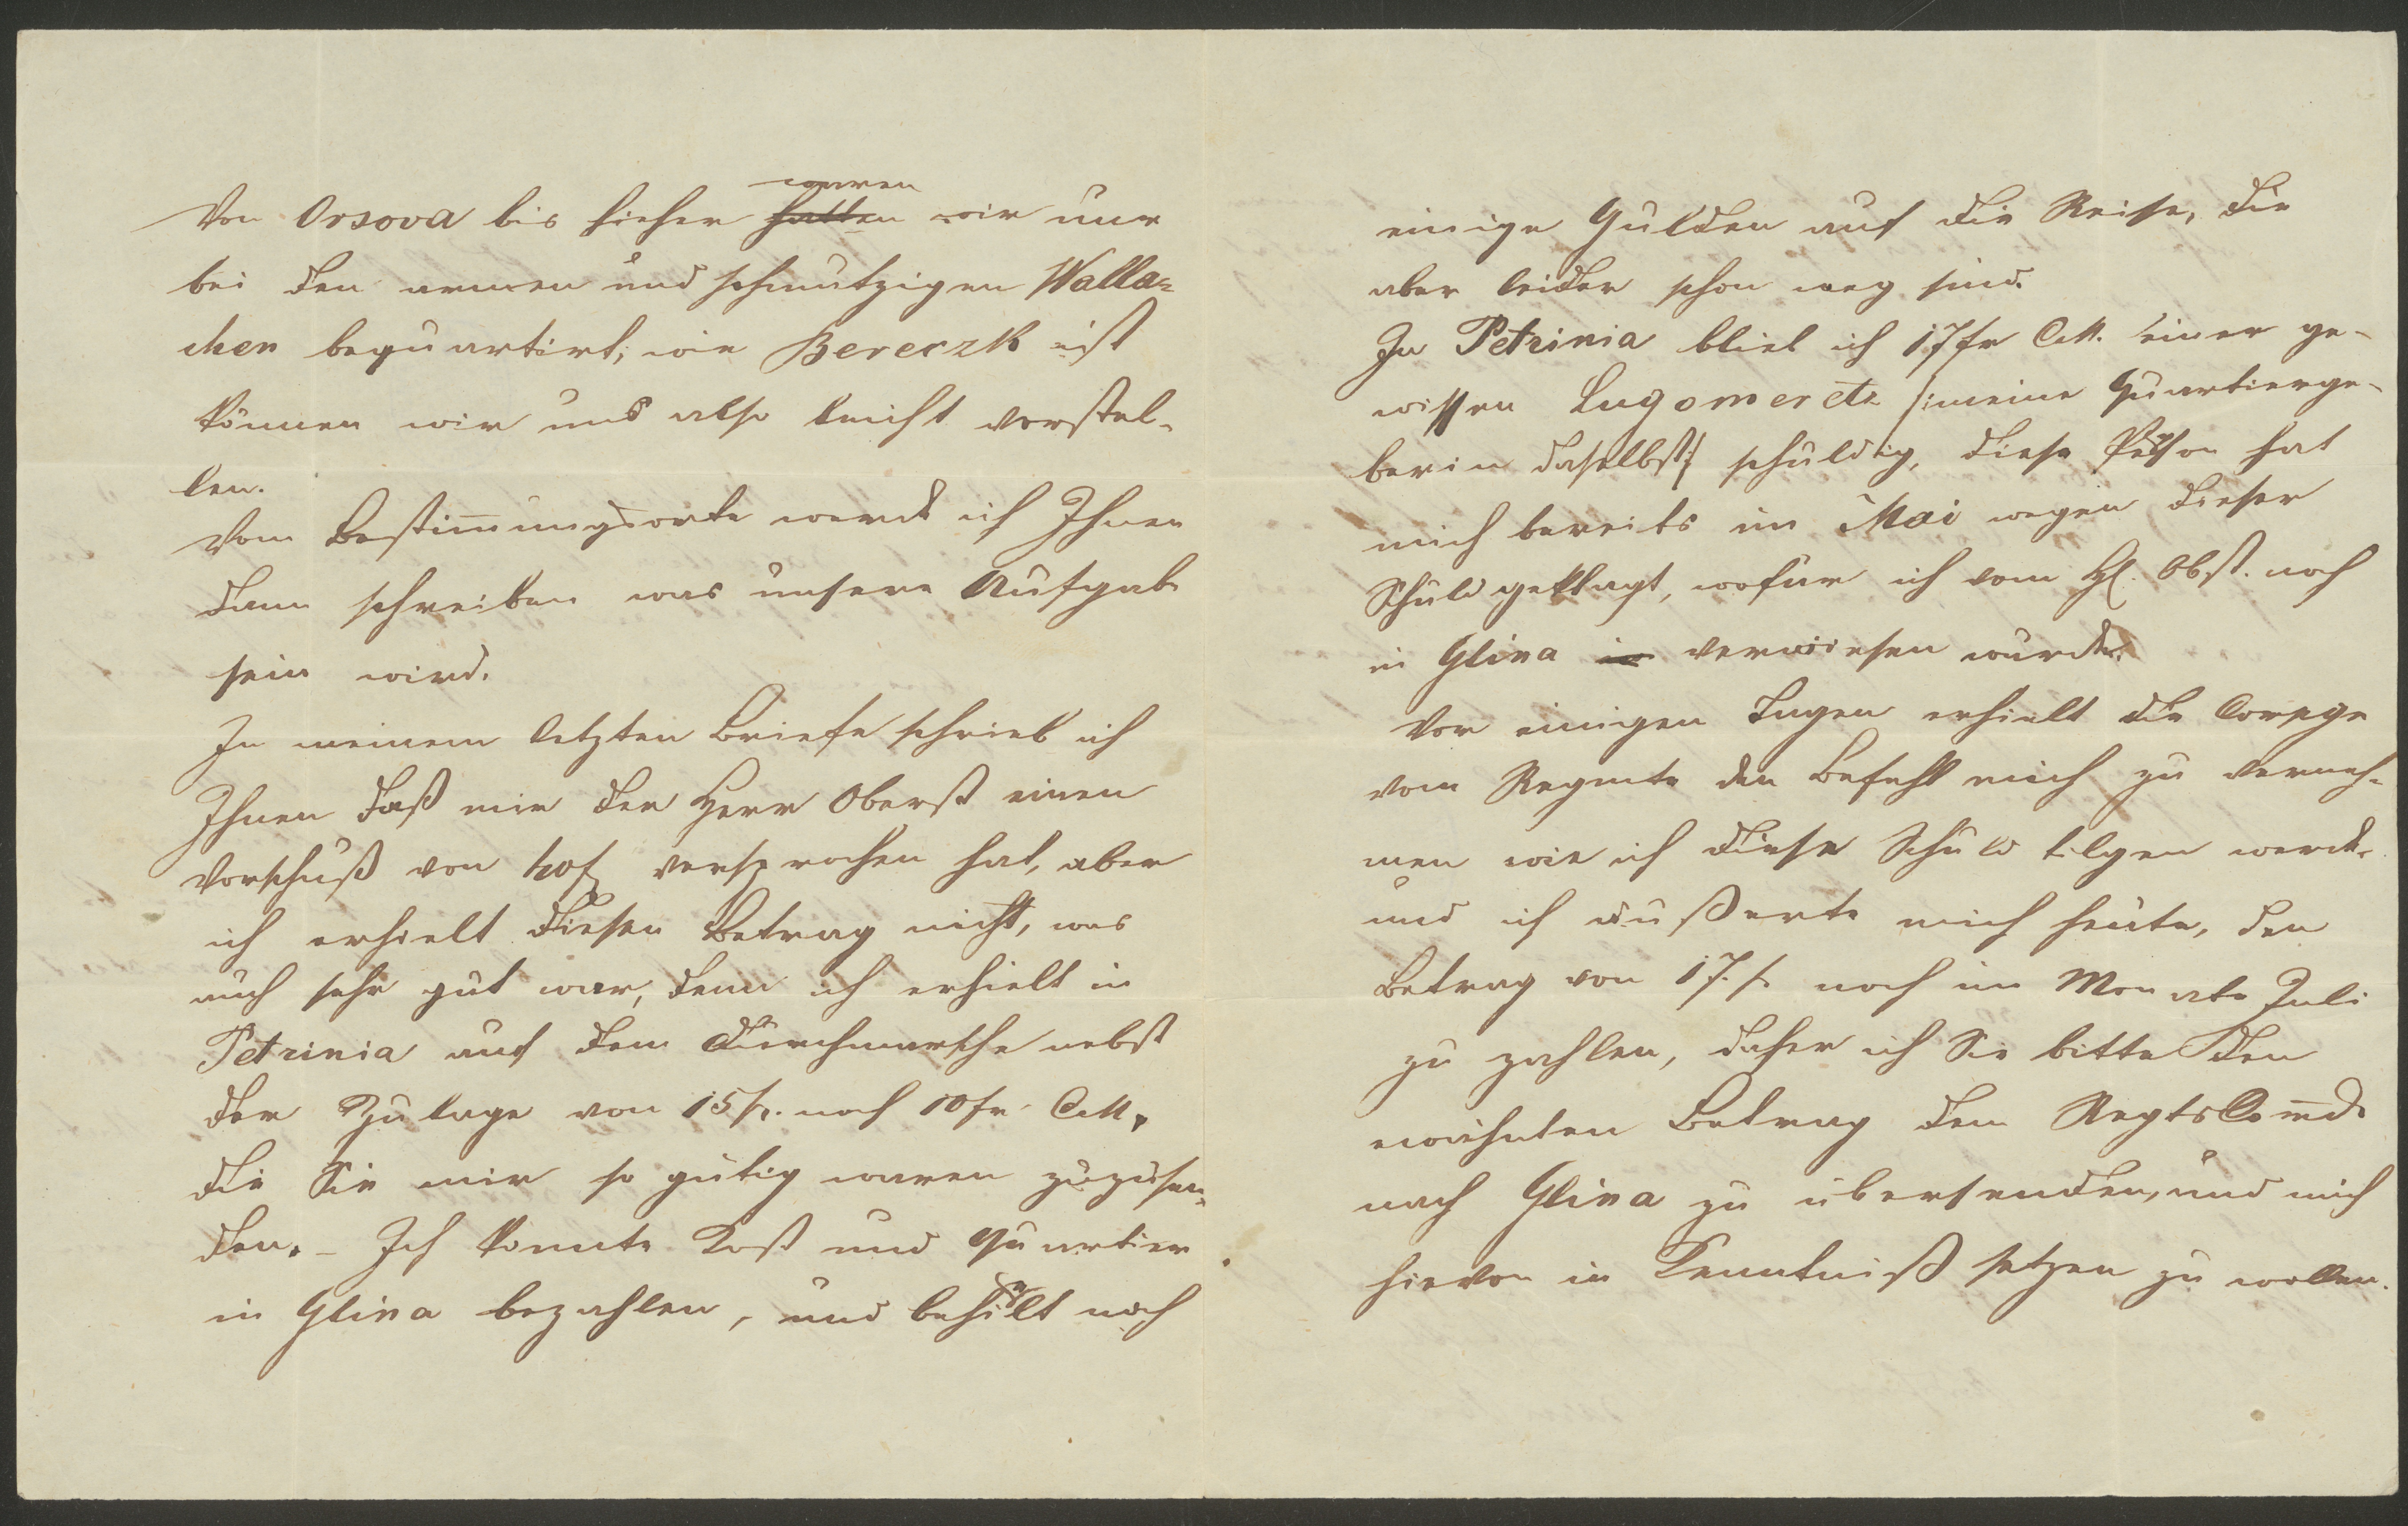 Von Orsova bis hieher waren wir nur
bei den armen und schmutzigen Walla-
chen bequartirt; wie Bereczk ist
können wir uns also leicht vorstel-
len.
Vom Bestimmungsorte werde ich Ihnen
dann schreiben was unsere Aufgabe
sein wird.
In meinem letzten Briefe schrieb ich
Ihnen daß mir der Herr Oberst einen
Vorschuß von versprochen hat, aber
ich erhielt diesen Betrag nicht, was
auch sehr gut war, denn ich erhielt in
Petrinia auf dem Durchmarsche nebst
der Zulage von 15 fr. noch 10 fr CM.
die Sie mir so gütig waren zuzusen-
den. – Ich konnte Kost und Quartier
in Glina bezahlen, und behielt noch
einige Gulden auf die Reise, die
aber leider schon weg sind.
In Petrinia blieb ich 17 fr CM. einer ge-
wissen Lugomeretz /:meine Quartierge-
berin daselbst:/ schuldig, diese Person hat
mich bereits im Mai wegen dieser
Schuld geklagt, wofür ich vom H. Obst. noch
in Glina verwiesen wurde.
Vor einigen Tagen erhielt die Compge
vom Regmte den Befehl mich zu verneh-
men wie ich diese Schuld tilgen werde.
und ich äußerte mich heute, den
Betrag von 17 f. noch im Monate Juli
zu zahlen, daher ich Sie bitte den
erwähnten Betrag dem RegtsCommdo
nach Glina zu übersenden, und mich
hievon in Kenntniß setzen zu wollen.